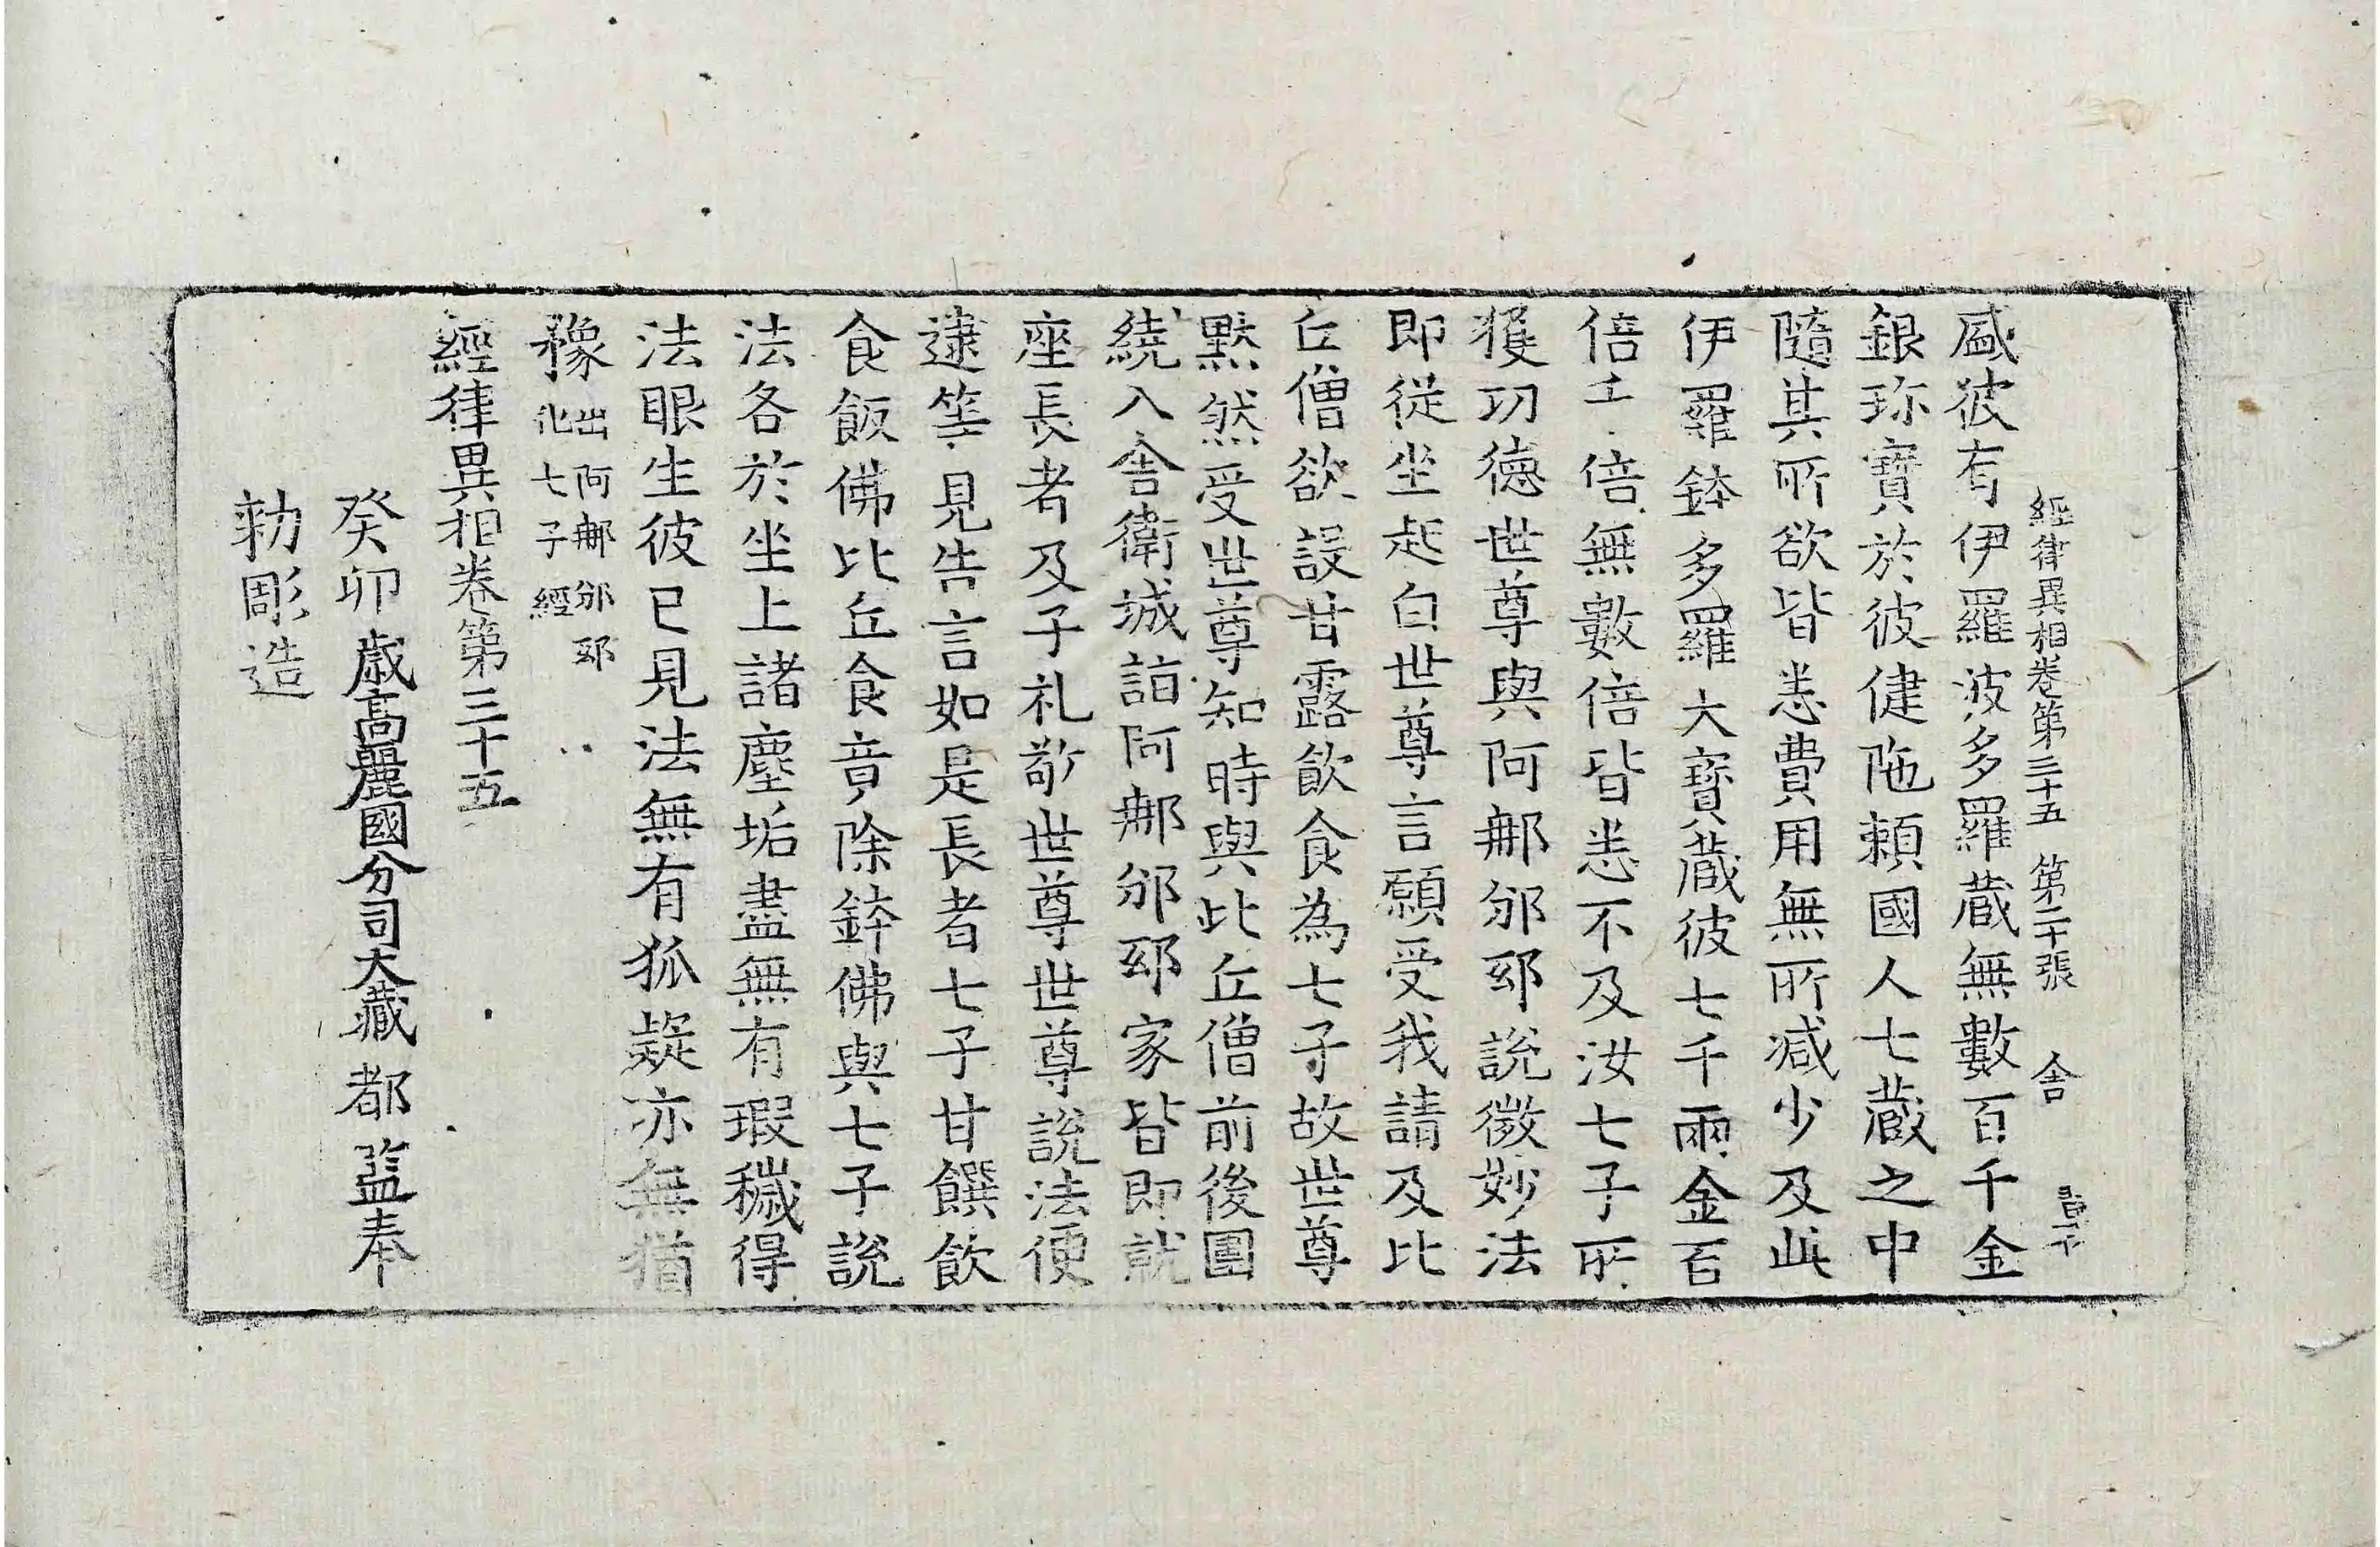 經律異相卷第三十五 第二十張 舍
盛彼有伊羅波多羅蔵無數百千金
銀珎寶於彼健陁頼國人七蔵之中
隨其所欲皆悉費用無所減少及此
伊羅鉢多羅大寶蔵彼七千兩金百
倍千倍無數倍皆悉不及汝七子所
獲功德世尊與阿𨚗邠邸說微妙法
即從坐起白世尊言願受我請及比
丘僧欲設甘露飲食為七子故世尊
黙然受世尊知時與比丘僧前後圍
繞入舍衛城詣阿𨚗邠邸家皆即就
座長者及子礼敬世尊世尊說法便
逮等見告言如是長者七子甘饌飲
食飯佛比丘食竟除鉢佛與七子說
法各於坐上諸塵垢盡無有瑕穢得
法眼生彼已見法無有狐疑亦無猶
豫 出阿𨚗邠邸
化七子經
經律異相卷第三十五
癸卯歳高麗國分司大藏都監奉
勑彫造